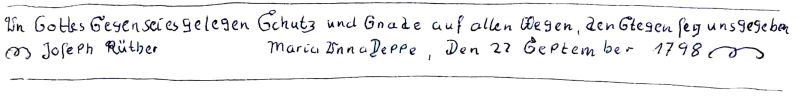 An Gottes Segen sei es gelegen Schutz und Gnade auf allen Wegen, den Stegen sey uns gegeben
Joseph Rüther Maria Anna Deppe, Den 22 September 1798